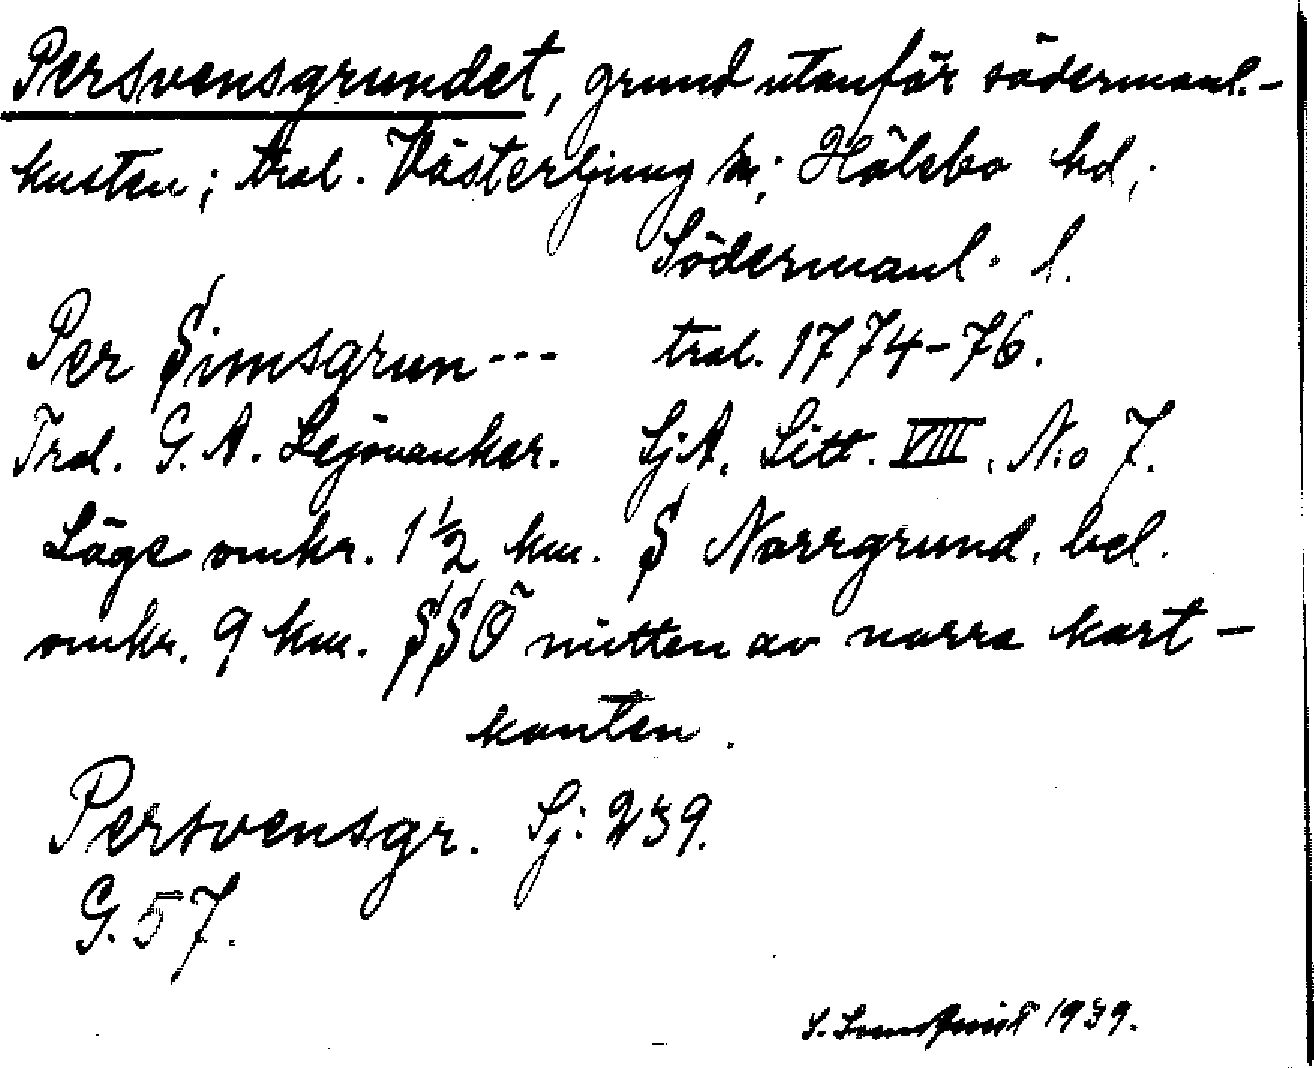 Persvensgrundet, grund utanför södermanl.-
kusten; trol. Västerljung sn; Hölebo hd;
Södermanl. l.
Per Simsgrun--- trol. 1774-76.
Trol. G. A. Lejonanker. SjA. Litt. VIII. No 7.
Läge omkr. 1½ km. S Norrgrund. bel.
omkr. 9 km. SSÖ mitten av norra kart-
kanten.
Persvensgr. Sj: 239.
G. 57.
S. 1939.